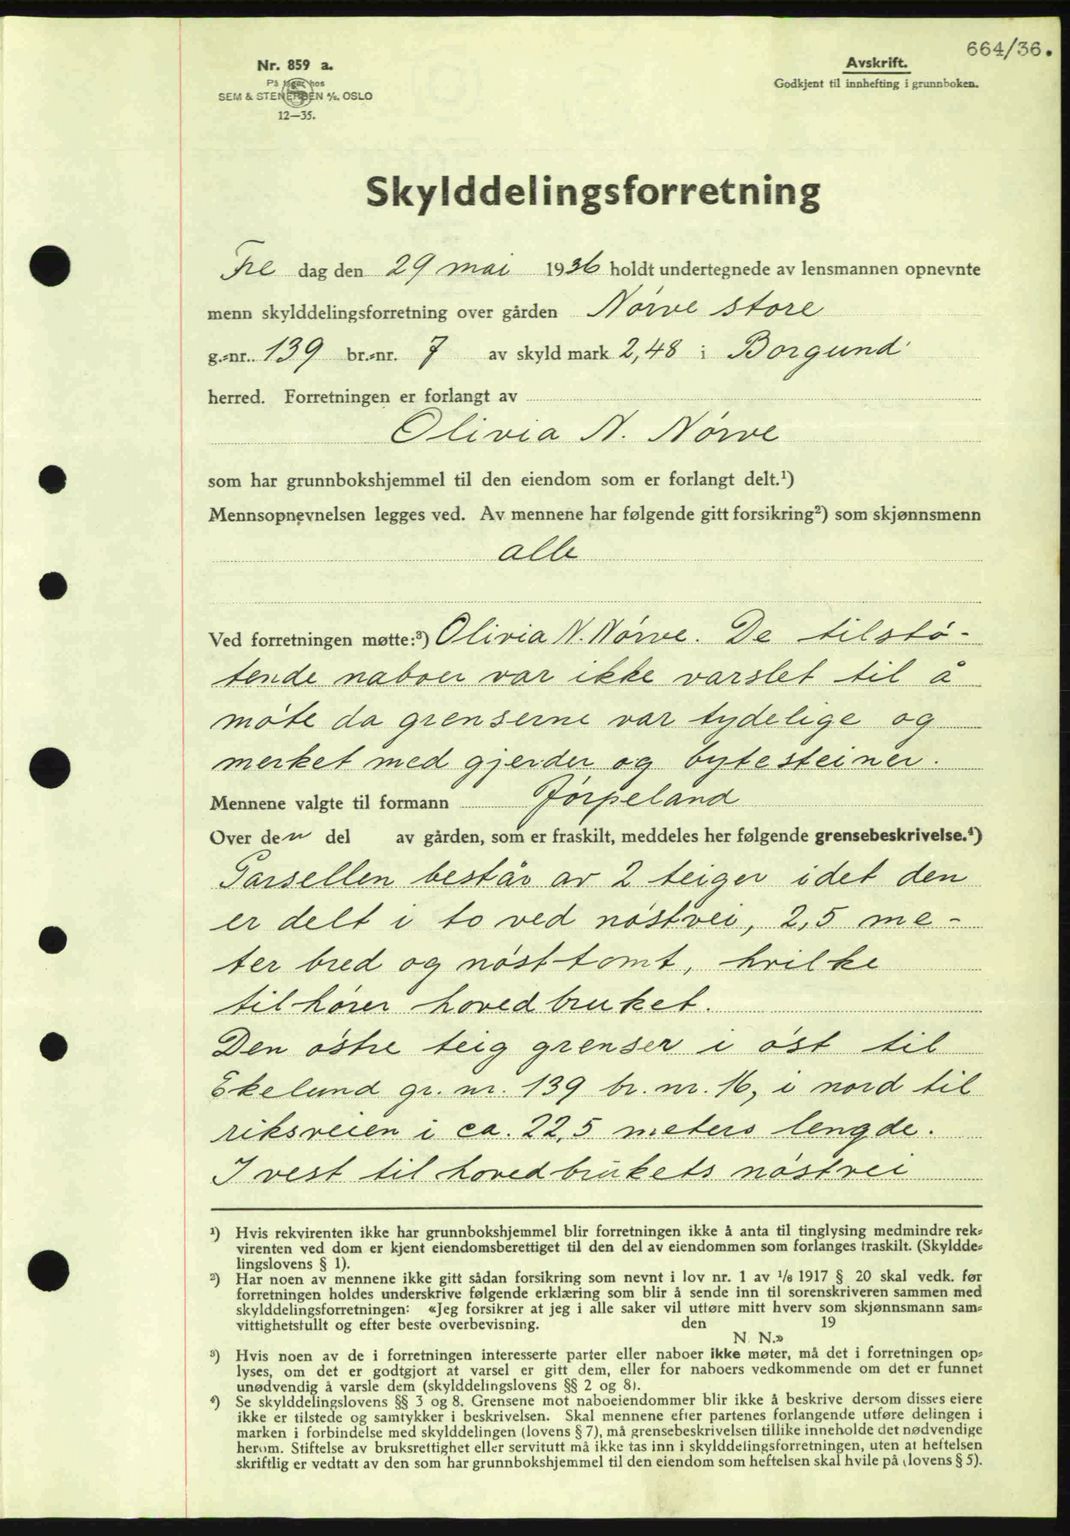 664/36.
Nr. 859 a.
På lager hos
SEM & STENERSEN A/S. OSLO
12—35.
Avskrift.
Godkjent til innhefting i grunnboken.
Skylddelingsforretning
Fre dag den 29 mai 1936 holdt undertegnede av lensmannen opnevnte
menn skylddelingsforretning over gården Nørve store
g.=nr. 139 br.=nr. 7 av skyld mark 2,48 i Borgund
herred. Forretningen er forlangt av
Olivia N. Nørve
som har grunnbokshjemmel til den eiendom som er forlangt delt.¹)
Mennsopnevnelsen legges ved. Av mennene har følgende gitt forsikring²) som skjønnsmenn
alle
Ved forretningen møtte:³) Olivia N. Nørve. De tilstø-
tende naboer var ikke varslet til å
møte da grenserne var tydelige og
merket med gjerder og bytesteiner.
Mennene valgte til formann Jørpeland
Over den del av gården, som er fraskilt, meddeles her følgende grensebeskrivelse.⁴)
Parsellen består av 2 teiger idet den
er delt i to ved nøstvei, 2,5 me-
ter bred og nøst-tomt, hvilke
tilhører hovedbruket.
Den østre teig grenser i øst til
Ekelund gr. nr. 139 br. nr. 16, i nord til
riksveien i ca. 22,5 meters lengde.
I vest til hovedbrukets nøstvei
¹) Hvis rekvirenten ikke har grunnbokshjemmel blir forretningen ikke å anta til tinglysing medmindre rek=
virenten ved dom er kjent eiendomsberettiget til den del av eiendommen som forlanges fraskilt. (Skyldde=
lingslovens § 1).
²) Har noen av mennene ikke gitt sådan forsikring som nevnt i lov nr. 1 av 1/6 1917 § 20 skal vedk. før
forretningen holdes underskrive følgende erklæring som blir å sende inn til sorenskriveren sammen med
skylddelingsforretningen: «Jeg forsikrer at jeg i alle saker vil utføre mitt hverv som skjønnsmann sam=
vittighetsfullt og efter beste overbevisning. den 19
N. N.»
³) Hvis noen av de i forretningen interesserte parter eller naboer ikke møter, må det i forretningen op=
lyses, om det er godtgjort at varsel er gitt dem, eller for naboers vedkommende om det er funnet
unødvendig å varsle dem (skylddelingslovens §§ 2 og 8).
⁴) Se skylddelingslovens §§ 3 og 8. Grensene mot naboeiendommer blir ikke å beskrive dersom disses eiere
ikke er tilstede og samtykker i beskrivelsen. Skal mennene efter partenes forlangende utføre delingen i
marken i forbindelse med skylddelingen (lovens § 7), må grensebeskrivelsen tillike inneholde det nødvendige
herom. Stiftelse av bruksrettighet eller servitutt må ikke tas inn i skylddelingsforretningen, uten at heftelsen
skriftlig er vedtatt av den som har grunnbokshjemmel til den eiendom som heftelsen skal hvile på (lovens § 5).